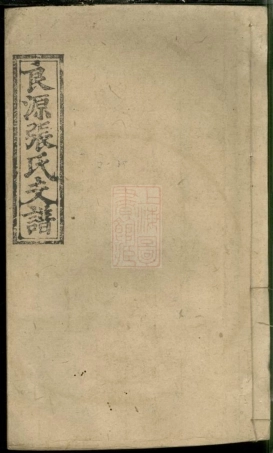 良源張氏支譜